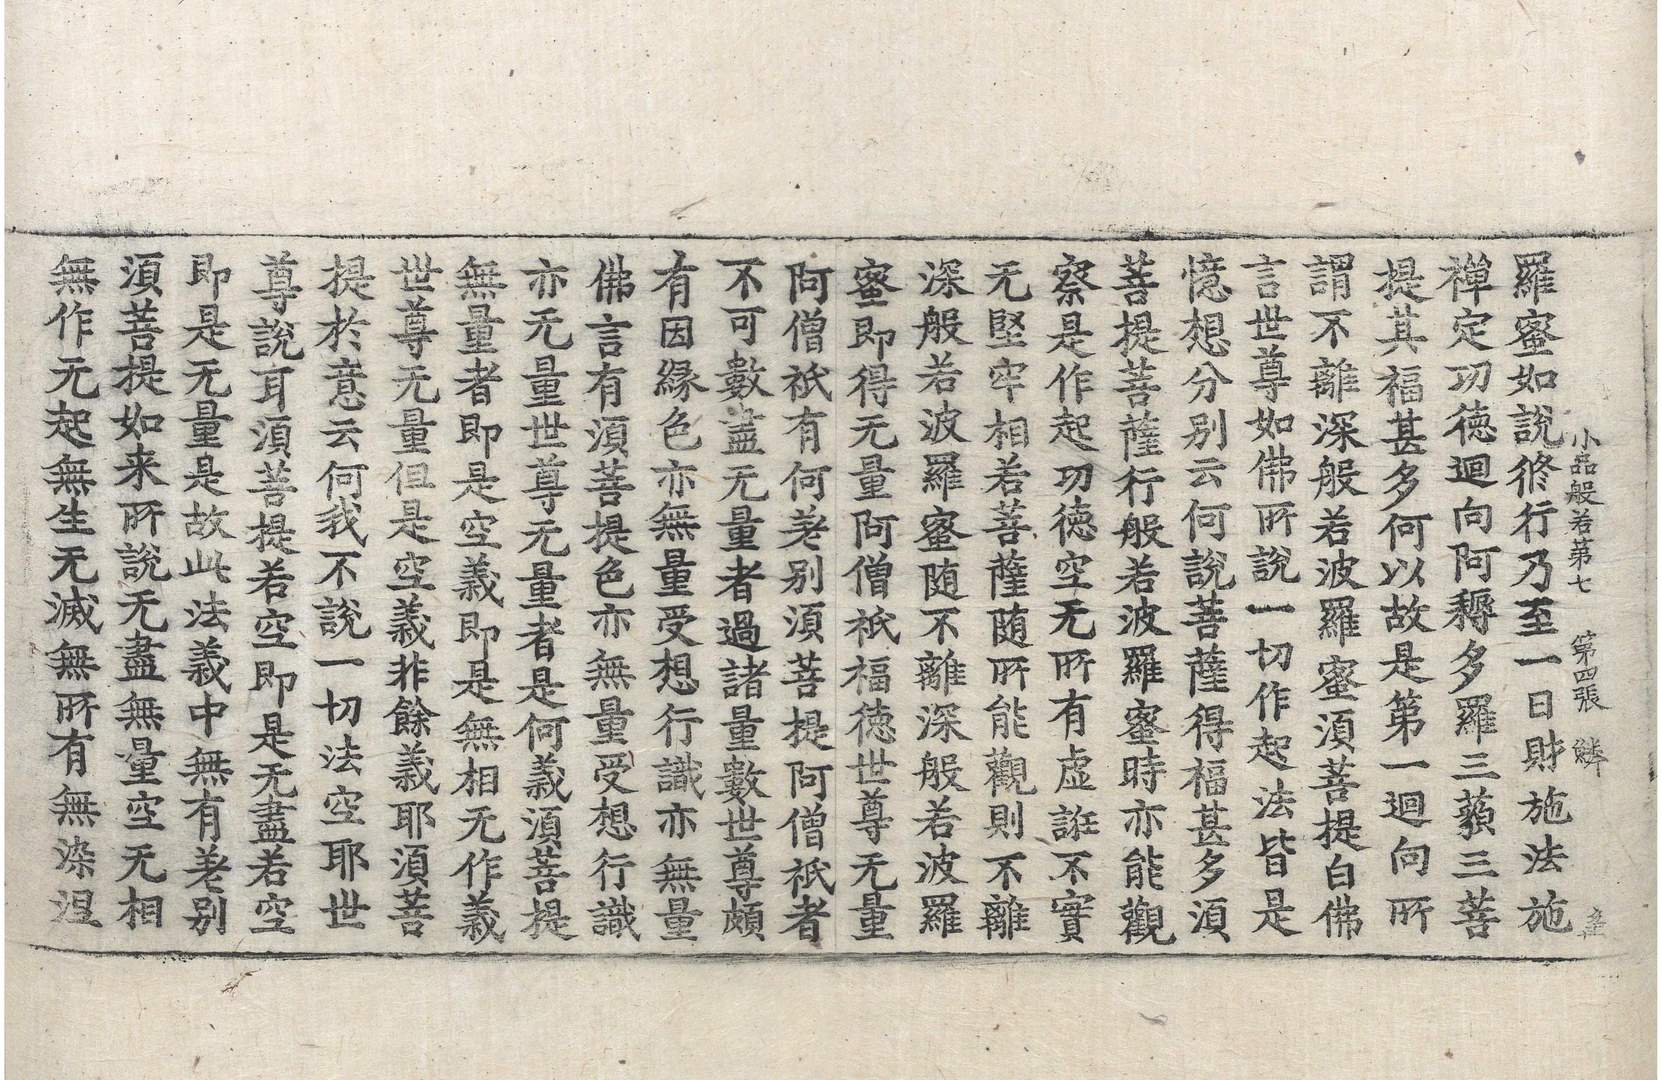 小品般若第七 第四張 鱗
羅蜜如說修行乃至一日財施法施
禪定功德迴向阿耨多羅三藐三菩
提其福甚多何以故是第一迴向所
謂不離深般若波羅蜜須菩提白佛
言世尊如佛所說一切作起法皆是
憶想分別云何說菩薩得福甚多須
菩提菩薩行般若波羅蜜時亦能觀
察是作起功德空无所有虛誑不實
无堅牢相若菩薩隨所能觀則不離
深般若波羅蜜隨不離深般若波羅
蜜即得无量阿僧祇福德世尊无量
阿僧祇有何差別須菩提阿僧祇者
不可數盡无量者過諸量數世尊頗
有因緣色亦無量受想行識亦無量
佛言有須菩提色亦無量受想行識
亦无量世尊无量者是何義須菩提
無量者即是空義即是無相无作義
世尊无量但是空義非餘義耶須菩
提於意云何我不說一切法空耶世
尊說耳須菩提若空即是无盡若空
即是无量是故此法義中無有差別
須菩提如来所說无盡無量空无相
無作无起無生无滅無所有無染涅